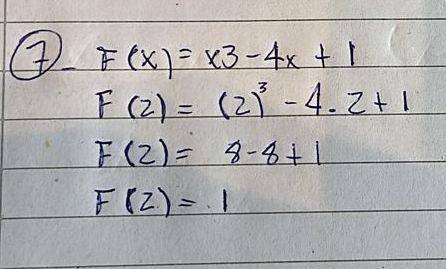 7- F(x) = x3 - 4x + 1
F(2) = (2)³ - 4.2 + 1
F(2) = 8 - 8 + 1
F(2) = 1